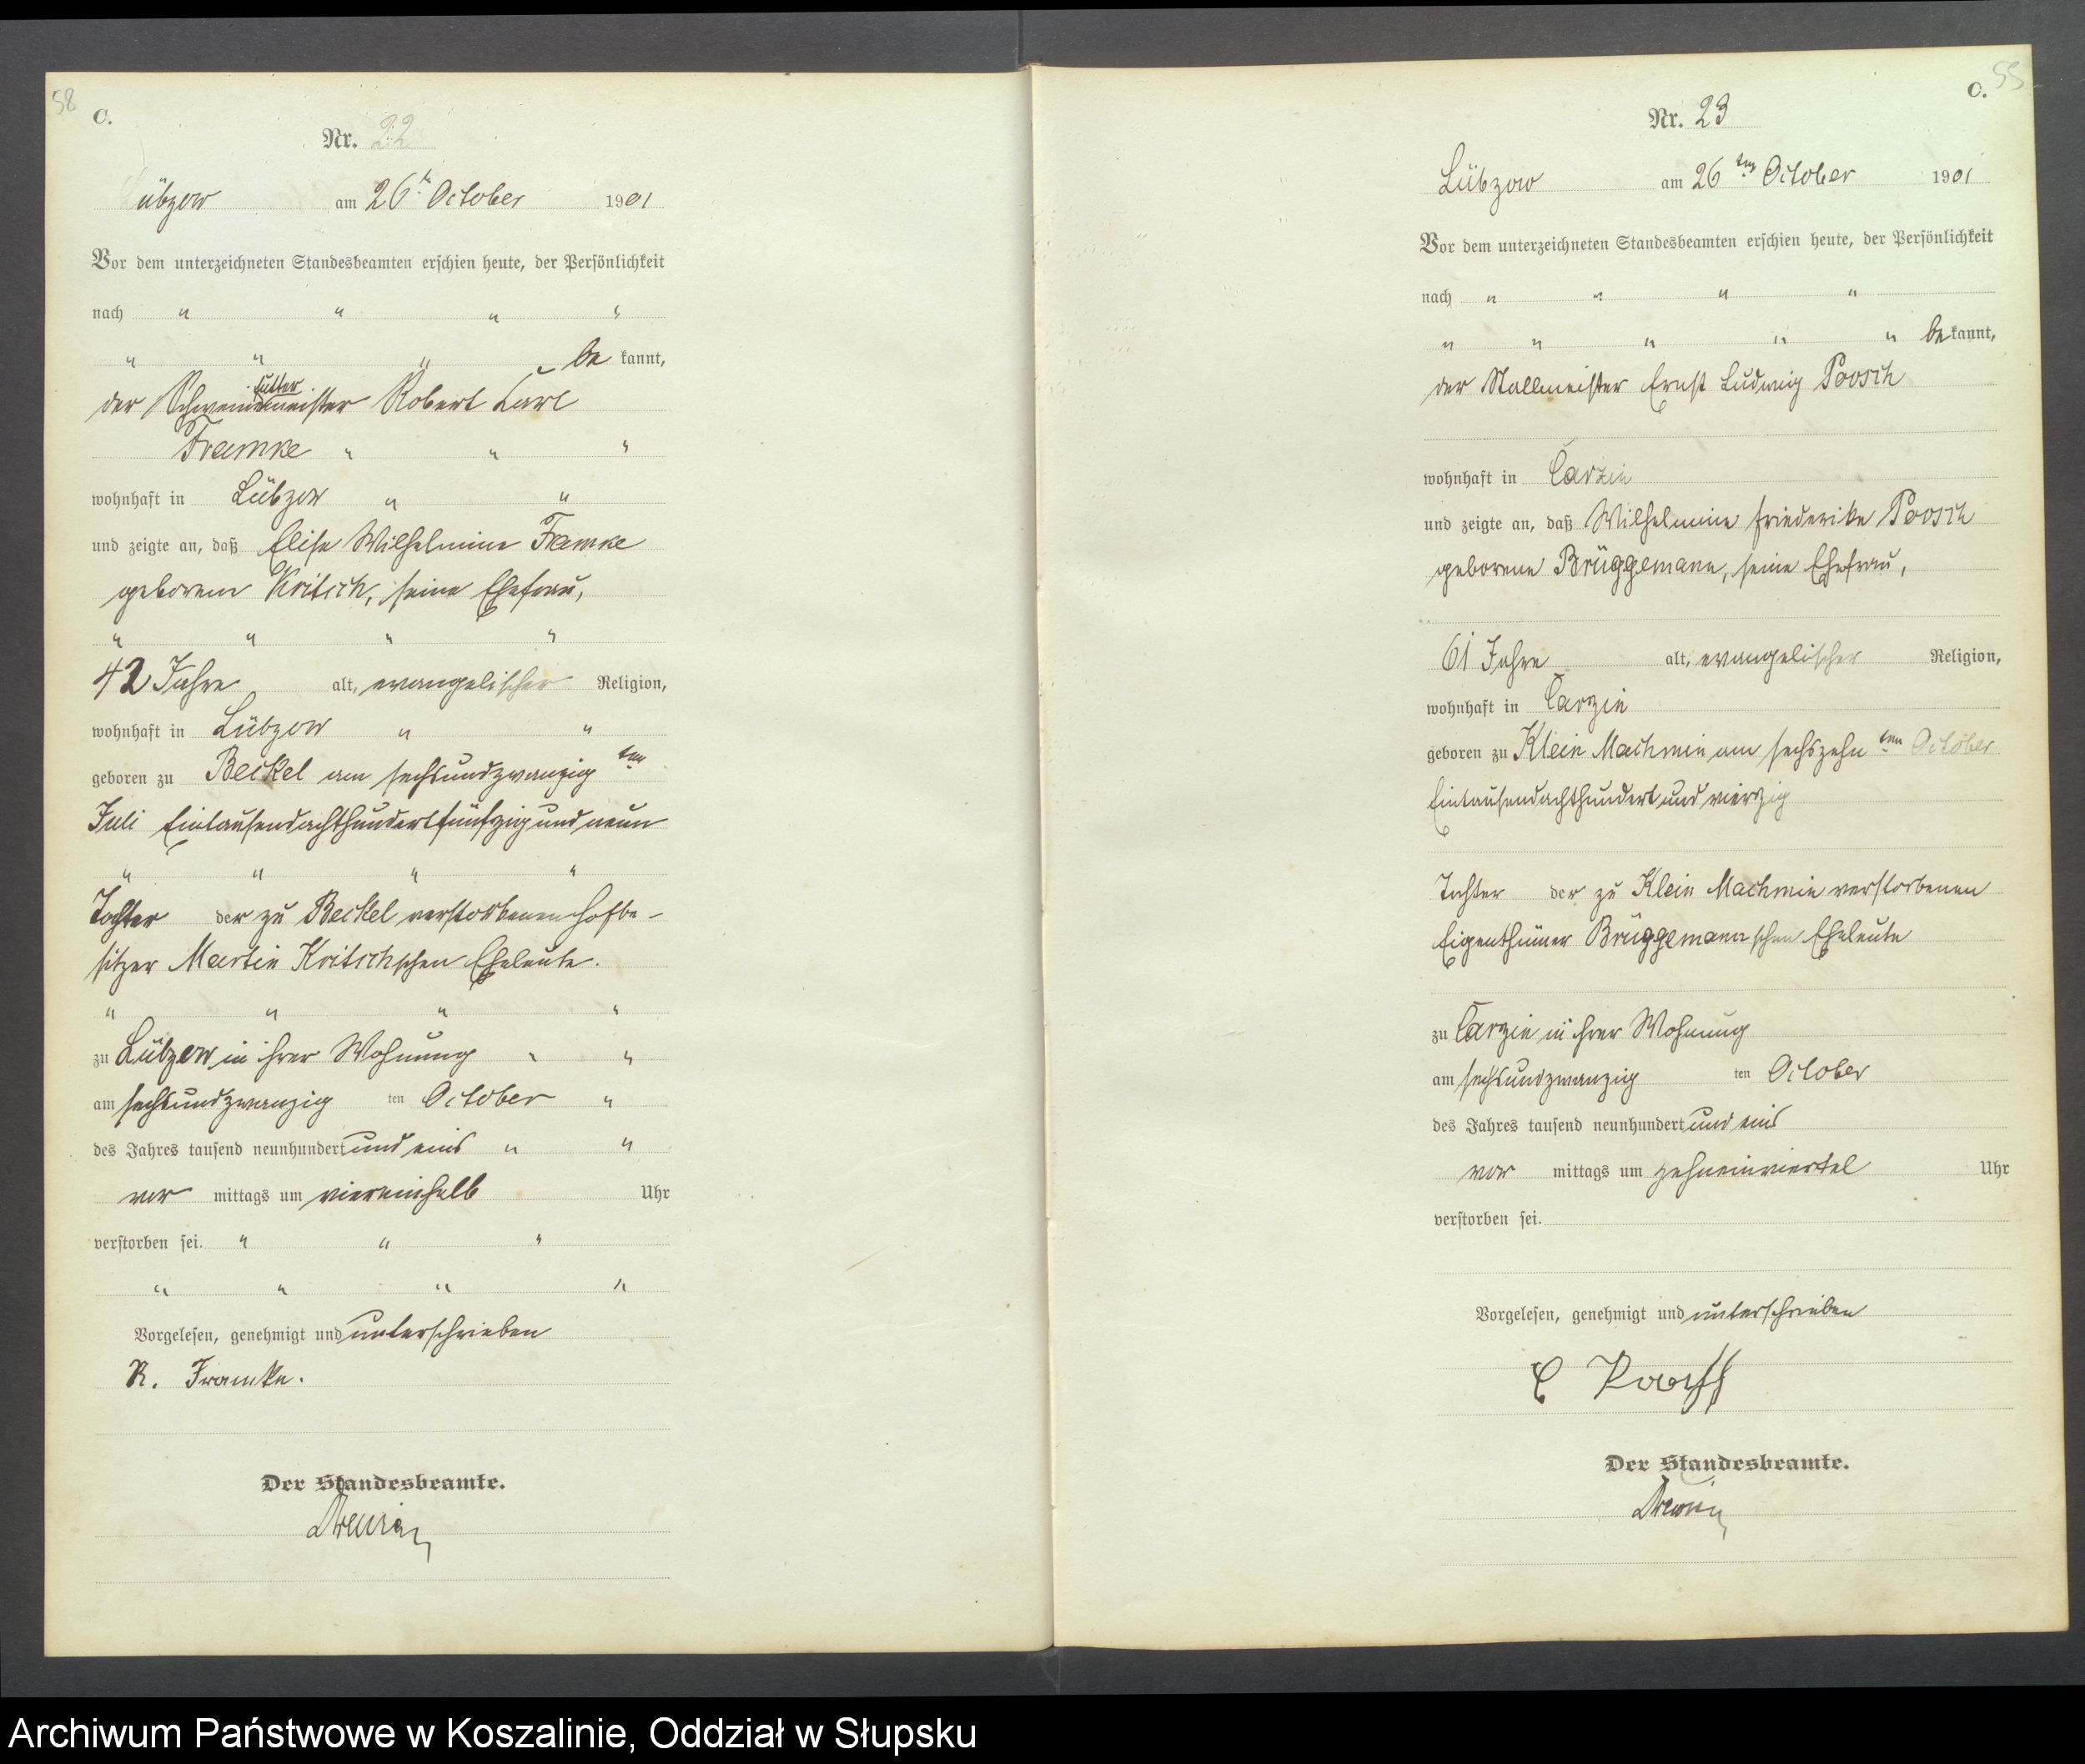 58
C.
Nr. 22
Lübzow am 26t October 1901
Vor dem unterzeichneten Standesbeamten erschien heute, der Persönlichkeit
nach " " " "
" " " " be kannt,
futter
der Schweinemeister Robert Carl
Framke " " "
wohnhaft in Lübzow " "
und zeigte an, daß Elise Wilhelmine Framke
geborene Kritsch, seine Ehefrau,
" " " "
42 Jahre alt, evangelischer Religion,
wohnhaft in Lübzow " "
geboren zu Beckel am sechsundzwanzig ten
Juli Eintausendachthundertfünfzig und neun
" " " "
Tochter der zu Beckel verstorbenen Hofbe-
sitzer Martin Kritschschen Eheleute.
" " " "
zu Lübzow in ihrer Wohnung " "
am sechsundzwanzig ten October "
des Jahres tausend neunhundert und eins " "
vor mittags um viereinhalb Uhr
verstorben sei. " " "
" " " "
Vorgelesen, genehmigt und unterschrieben
R. Framke.
Der Standesbeamte.
C. 55
Nr. 23
Lübzow am 26ten October 1901
Vor dem unterzeichneten Standesbeamten erschien heute, der Persönlichkeit
nach " " " "
" " " " " be kannt,
der Stallmeister Ernst Ludwig Poosch
wohnhaft in Carzin
und zeigte an, daß Wilhelmine Friederike Poosch
geborene Brüggemann, seine Ehefrau,
61 Jahre alt, evangelischer Religion,
wohnhaft in Carzin
geboren zu Klein Machmin am sechszehn ten October
Eintausendachthundert und vierzig
Tochter der zu Klein Machmin verstorbenen
Eigenthümer Brüggemannschen Eheleute
zu Carzin in ihrer Wohnung
am sechsundzwanzig ten October
des Jahres tausend neunhundert und eins
vor mittags um zehneinviertel Uhr
verstorben sei.
Vorgelesen, genehmigt und unterschrieben
E Poosch
Der Standesbeamte.
Archiwum Państwowe w Koszalinie, Oddział w Słupsku